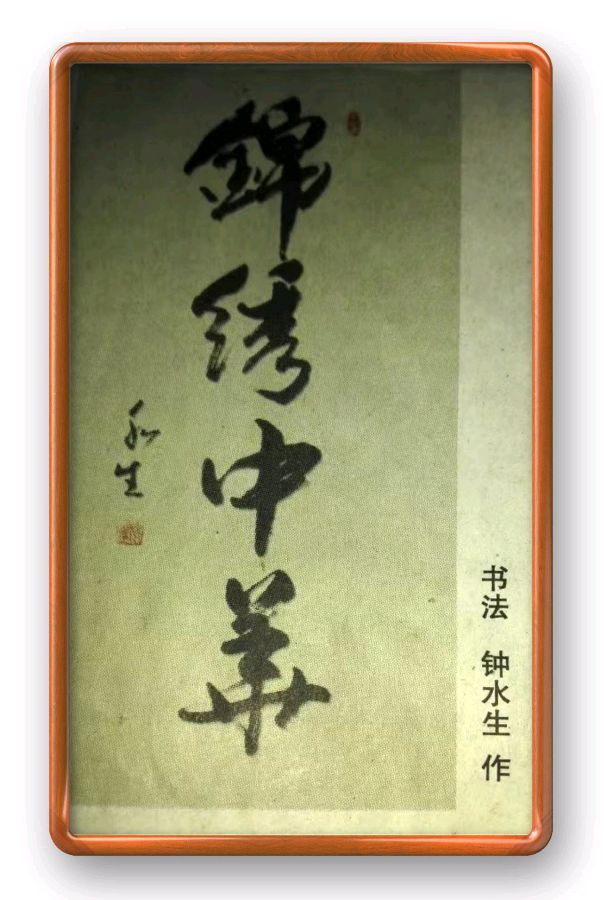 錦绣中華
水生
书法 钟水生 作